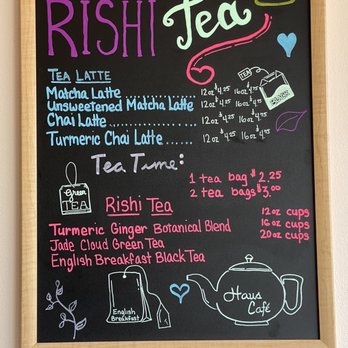 RISHI Tea
TEA LATTE
Matcha Latte 12oz $4.25 16oz $4.75
Unsweetened Matcha Latte 12oz $4.25 16oz $4.75
Chai Latte 12oz $4.25 16oz $4.75
Turmeric Chai Latte 12oz $4.25 16oz $4.75
TEA
Tea Time:
1 tea bag $2.25
2 tea bags $3.00
Green TEA
Rishi Tea
12oz cups
Turmeric Ginger Botanical Blend 16oz cups
Jade Cloud Green Tea 20oz cups
English Breakfast Black Tea
English Breakfast
Haus Café